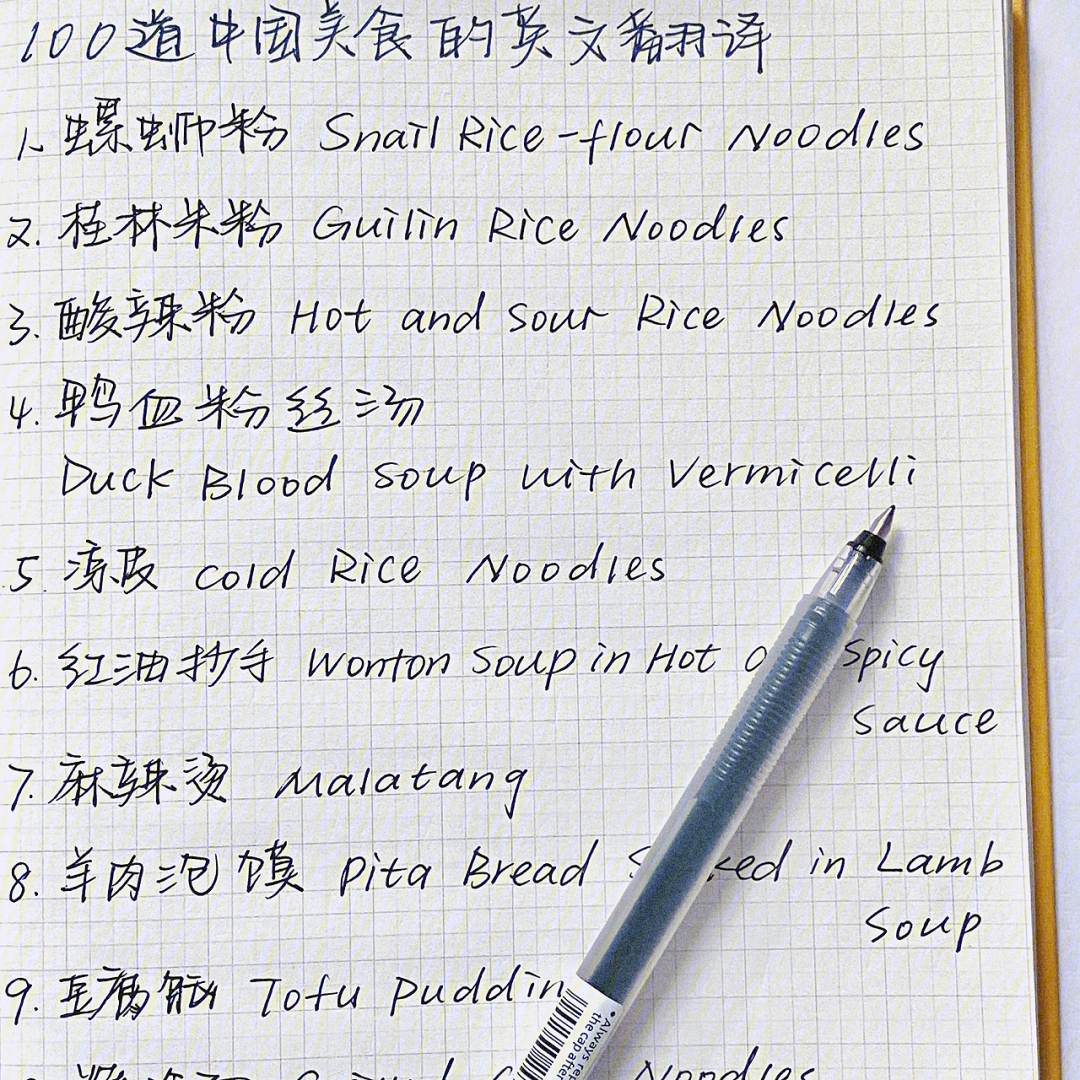 100道中国美食的英文翻译
1. 螺蛳粉 Snail Rice-flour Noodles
2. 桂林米粉 Guilin Rice Noodles
3. 酸辣粉 Hot and Sour Rice Noodles
4. 鸭血粉丝汤
Duck Blood Soup with Vermicelli
5. 凉皮 cold Rice Noodles
6. 红油抄手 Wonton Soup in Hot Spicy
Sauce
7. 麻辣烫 Malatang
8. 羊肉泡馍 Pita Bread in Lamb
Soup
9. 豆腐脑 Tofu Puddin
Noodles
• Always rep
the cap after